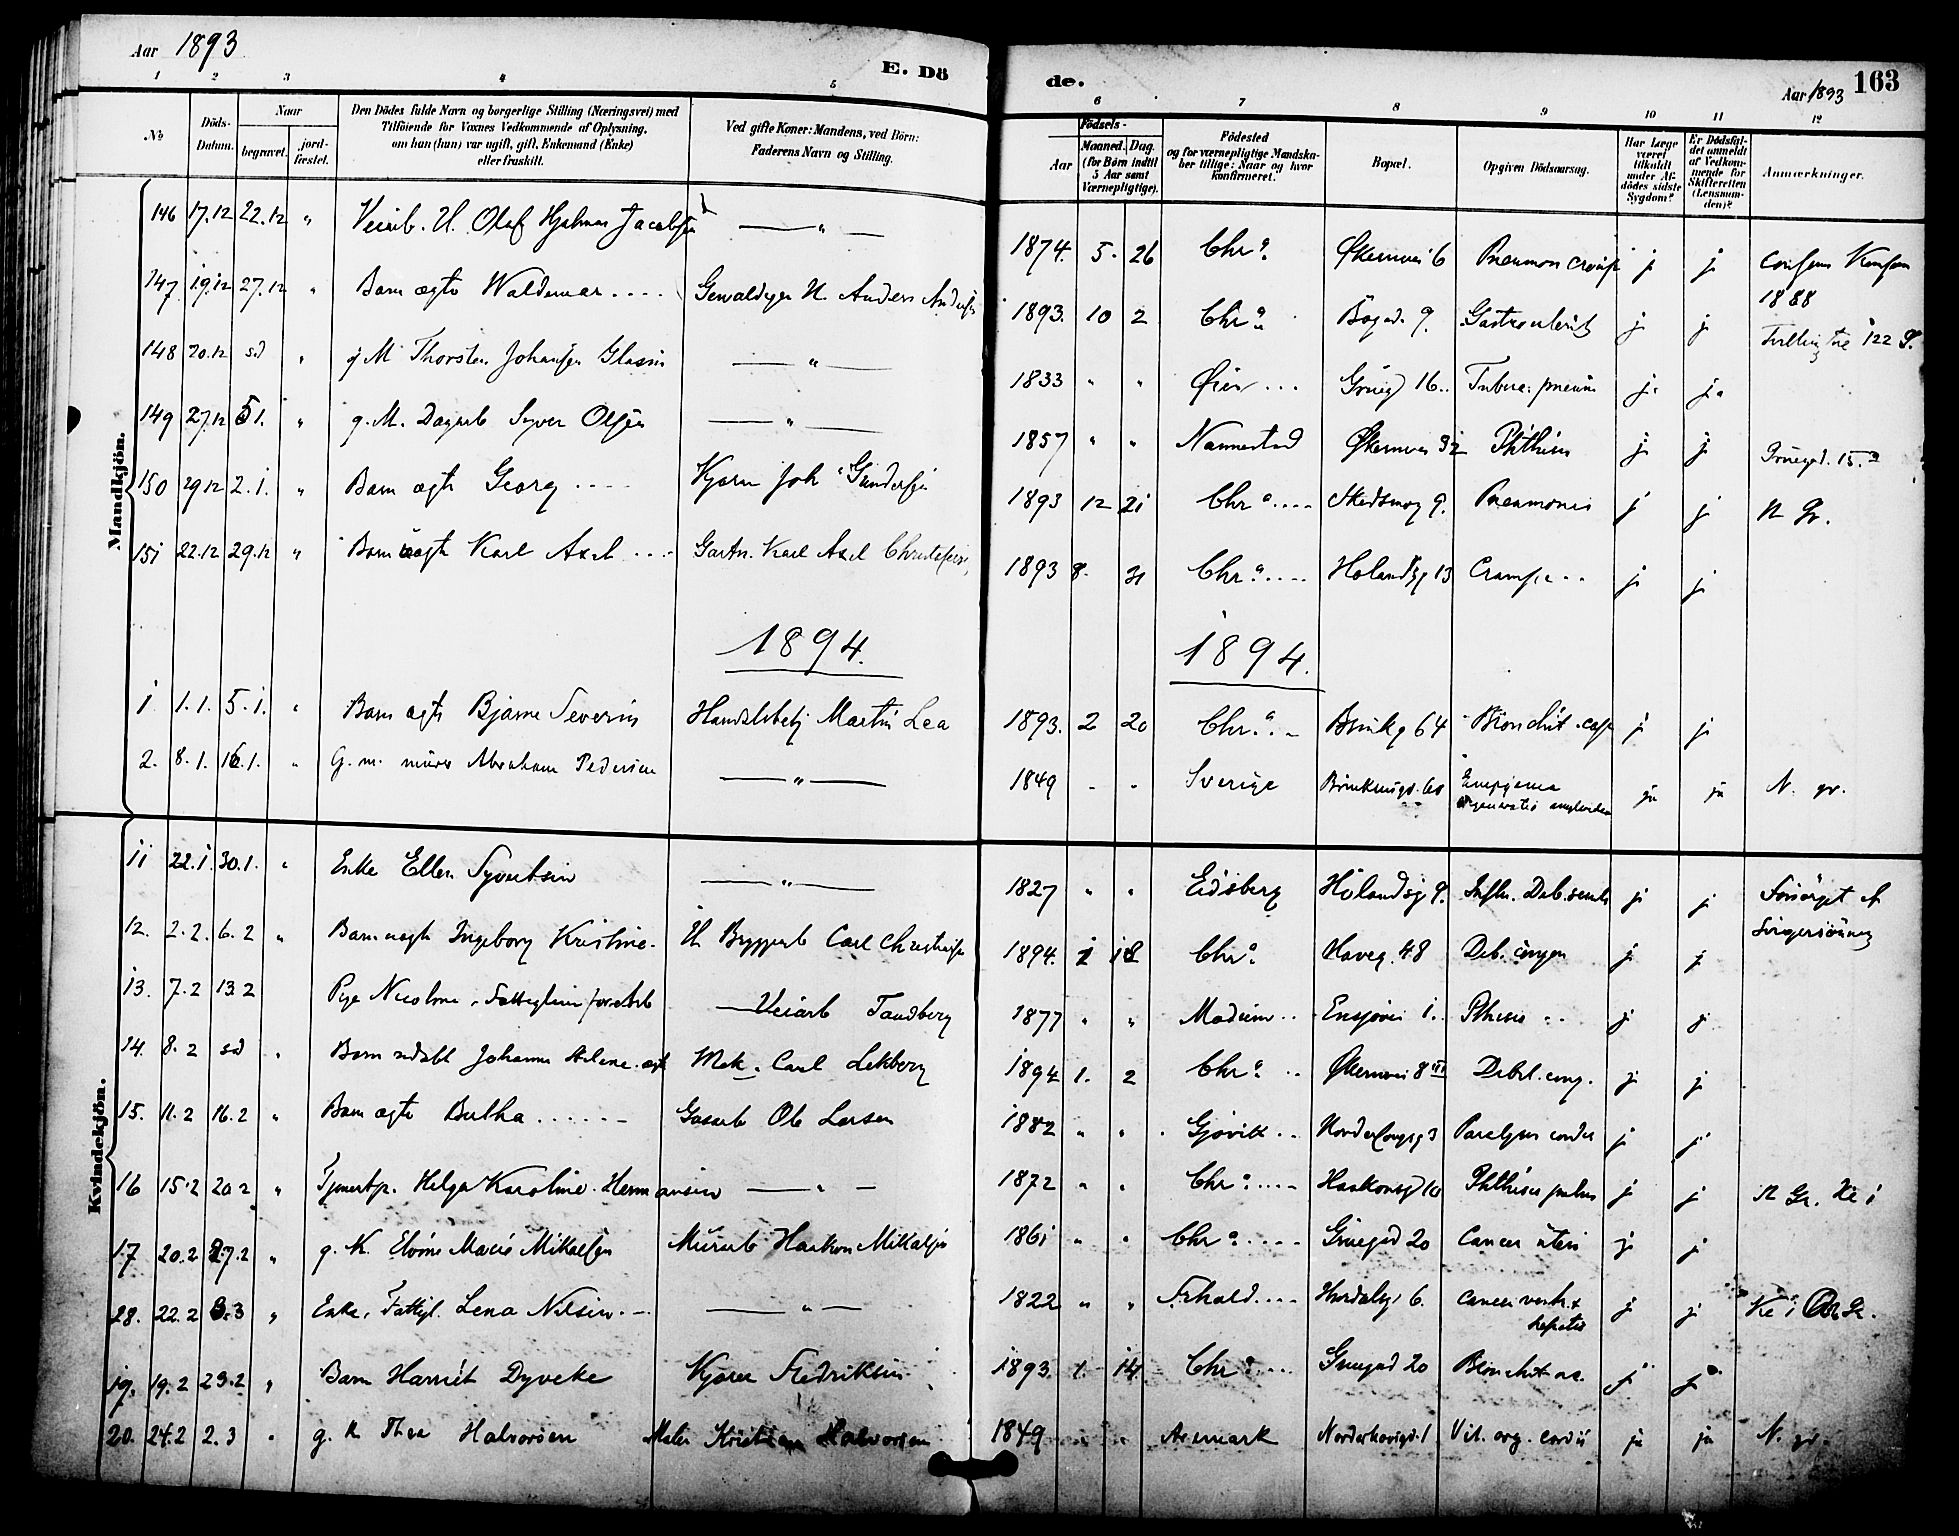 Aar 1893
E. Dö
de.
Aar 1893 163
1 2 3 4 5
6 7 8 9 10 11 12
No
Döds-Datum.
Naar
begravet.
jord-fæstet.
Den Dödes fulde Navn og borgerlige Stilling (Næringsvei) med
Tilföiende for Voxnes Vedkommende af Oplysning,
om han (hun) var ugift, gift, Enkemand (Enke)
eller fraskilt.
Ved gifte Koner: Mandens, ved Börn:
Faderens Navn og Stilling.
Födsels-
Aar
Maaned. Dag.
(for Børn indtil
5 Aar samt
Værnepligtige).
Födested
og for værnepligtige Mandska-
ber tillige: Naar og hvor
konfirmeret.
Bopæl.
Opgiven Dödsaarsag.
Har Læge
været
tilkaldt
under Af-
dödes sidste
Sygdom?
Er Dødsfal-
det anmeldt
af Vedkom-
mende for
Skifteretten
(Lensman-
den)?
Anmærkninger.
Mandkjön.
146 17.12 22.12 " Veiarb. U. Olaf Hjalmar Jacobsen — " — 1874. 5. 26 Chra. Økernvei 6 Pneumon croup j j
1888
147 19.12 27.12 " Barn ægte Waldemar .... Gevaldiger N. Anders 1893. 10 2 Chra. 9. Gastroenterit j j Tvilling
148 20.12 sd " g M Thorsten Johansen — " — 1833 " " Øier ... 16.. Tuberc. pneum j. ja
149 27.12 5 1. " g. M. Dagarb Syver Olsen — " — 1857 " " Nannestad Økernvei 32 Phthisis j j Gruegd. 15.
150 29.12 2.1. " Barn ægte Georg .... Kjører Joh Gundersen 1893 12 21 Chra .... Skedsmog 9. Pneumonia j j N Gr.
151 22.12 29.12 " Barn uægte Karl Axel ... Gartn. Karl Axel 1893 8. 31 Chra .... Hølandsg 13 Cramper .. j j
1894. 1894.
1 1.1. 5.1. " Barn ægte Bjarne Severin Handelsbetj Martin Lea 1893. 2 20 Chra. - Brinkg 64 Bronchit. cap j j
2. 8.1. 16.1. " G. m. murer Abraham Pedersen — " — 1849 - - Sverige Brinkensgd. 60 Empyema
degeneratio amyloidea ja ja N. gr.
Kvindekjön.
11 22.1. 30.1. " Enke Ellen Syvertsen — " — 1827 " " Eidsberg Hølandsg 9. Influ. Deb. senil j j Forsørget af
12. 2.2. 6.2 " Barn uægte Ingeborg Kristine. U Bryggerarb Carl 1894. 1 Chra. Haveg. 48 Deb. congen j j
13. 7.2 13.2 Pige Nicoline, Veiarb Tandberg 1877 " " Modum .. Ensjøvei 1.. Pthisis .. j j
14. 8.2 sd " Barn Johanne Helene. ægte Mek. Carl Lekberg 1894 1. 2 Chra. .. Økernvei 8 III Debil. cong. j j
15. 11.2 16.2 " Barn ægte Bertha ...... Gasarb Ole Larsen 1882 " " Gjøvik .. 3 Paralysis cordis j j
16 15.2 20.2 " Tjenestp. Helga Karoline Hermansen — " — 1872 " " Chra .... Haakonsgd 10 Phthisis pulm j j N Gr. Ke i
17 20.2 27.2 " g. K. Marie Mikaelsen Murarb Haakon Mikaelsen 1861 " " Chra .... Gruegad 20 Cancer uteri j j
28. 22.2 3.3 " Enke, Fattigl. Lena Nilsen. — — " — 1822 " " Frhald .... Hurdalsg 6. Cancer ventr. &
hepatis j j Ke i Gr.
19. 19.2 23.2 " Barn Harriet Dyveke Kjører Fredriksen 1893. 1. 14. Chra ... Gruegad 20 Bronchit ac. j j
20. 24.2 2.3 " g. K Thea Halvorsen Maler Kristian Halvorsen 1849 " " Aremark Norderhovsgd. 1 Vit. org. cordis ja ja N. gr.